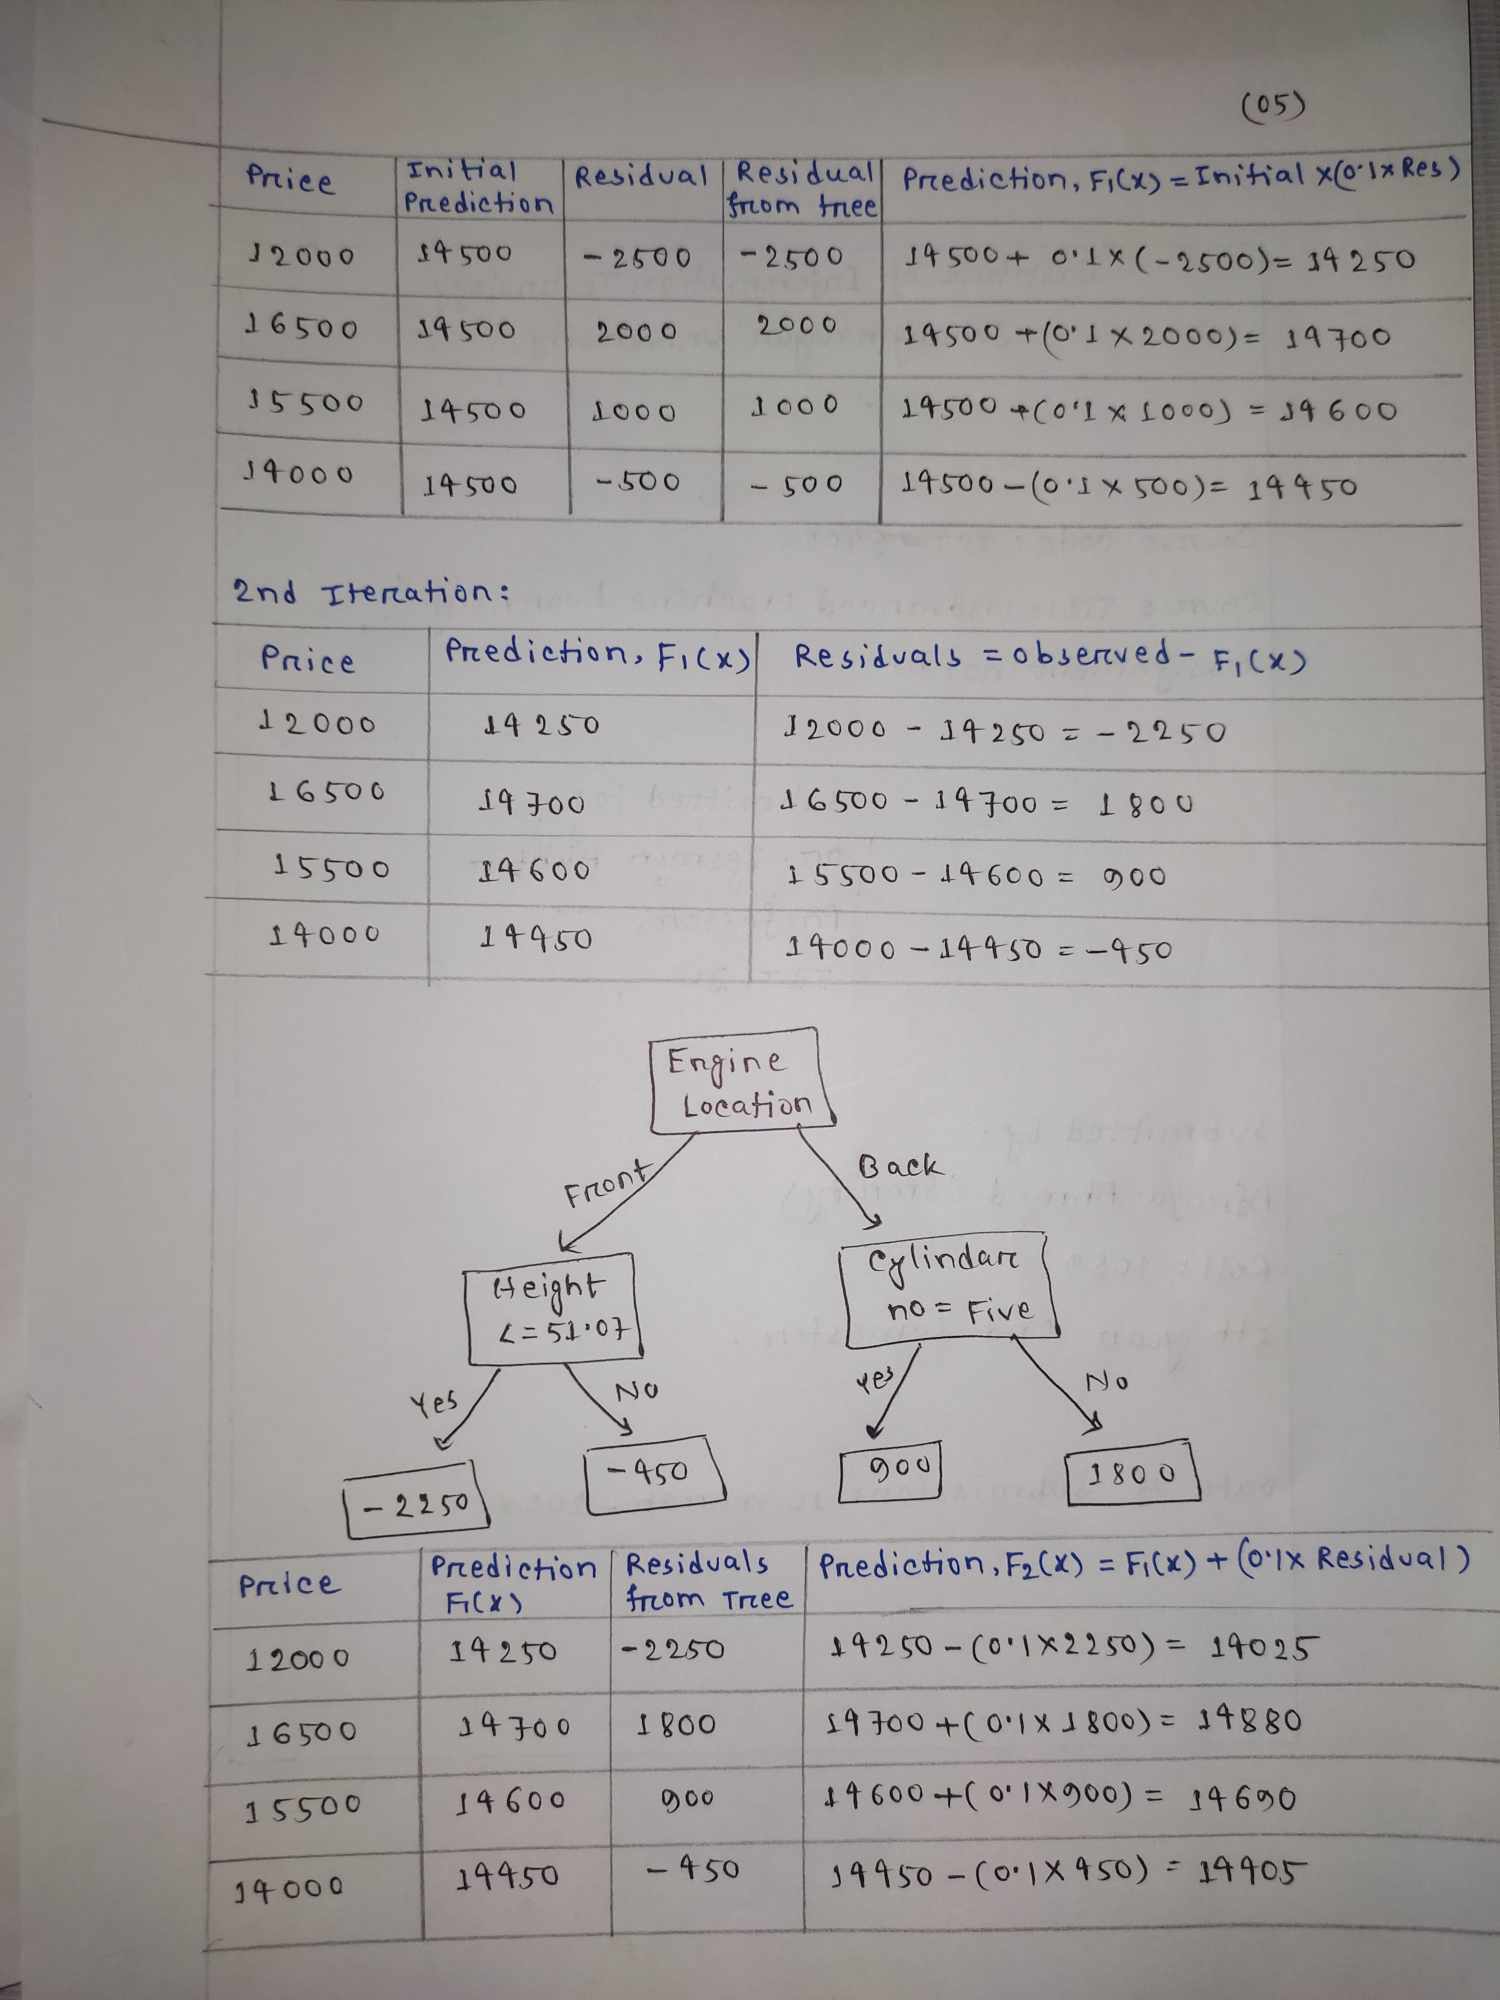 (05)
Price | Initial Prediction | Residual | Residual from tree | Prediction, F1(x) = Initial x(0.1x Res)
12000 | 14500 | -2500 | -2500 | 14500 + 0.1 x (-2500) = 14250
16500 | 14500 | 2000 | 2000 | 14500 + (0.1 x 2000) = 14700
15500 | 14500 | 1000 | 1000 | 14500 + (0.1 x 1000) = 14600
14000 | 14500 | -500 | -500 | 14500 - (0.1 x 500) = 14450
2nd Iteration:
Price | Prediction, F1(x) | Residuals = observed - F1(x)
12000 | 14250 | 12000 - 14250 = -2250
16500 | 14700 | 16500 - 14700 = 1800
15500 | 14600 | 15500 - 14600 = 900
14000 | 14450 | 14000 - 14450 = -450
Engine
Location
Front Back
Height Cylindar
<= 51.07 no = Five
Yes No Yes No
-2250 -450 900 1800
Price | Prediction F1(x) | Residuals from Tree | Prediction, F2(x) = F1(x) + (0.1x Residual)
12000 | 14250 | -2250 | 14250 - (0.1x2250) = 14025
16500 | 14700 | 1800 | 14700 + (0.1x1800) = 14880
15500 | 14600 | 900 | 14600 + (0.1x900) = 14690
14000 | 14450 | -450 | 14450 - (0.1x450) = 14405